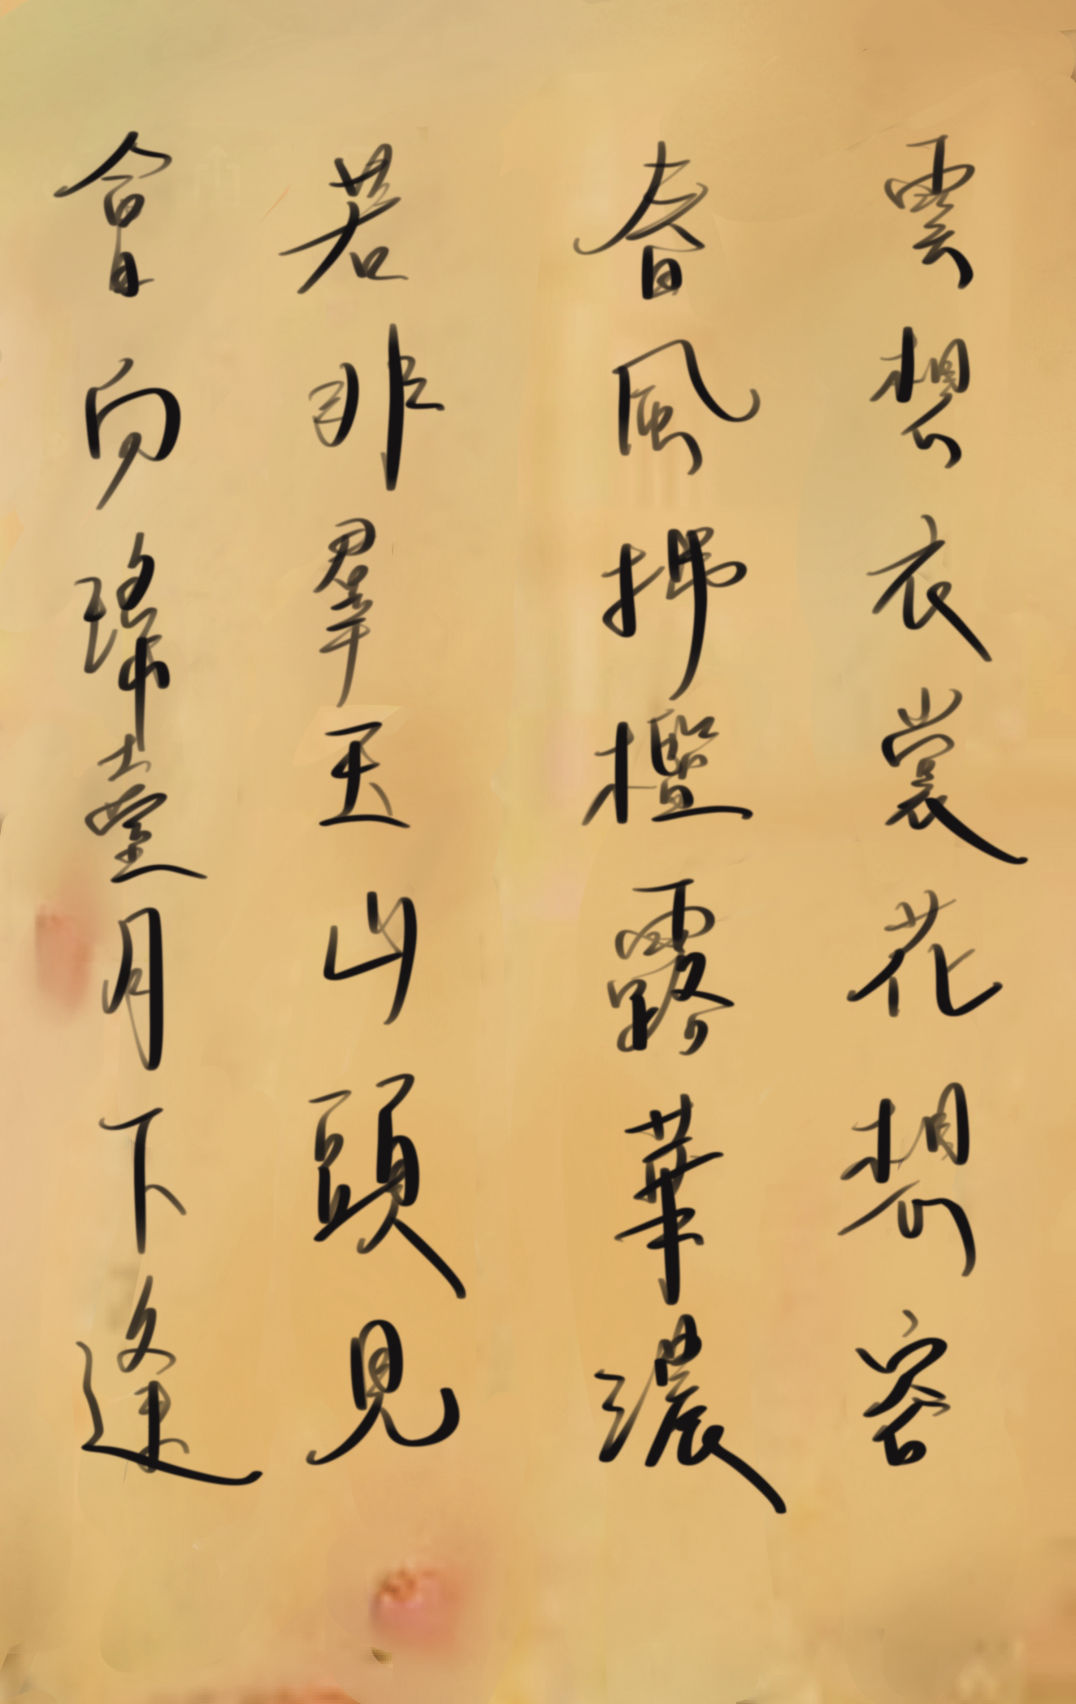 雲想衣裳花想容
春風拂檻露華濃
若非羣玉山頭見
會向瑤臺月下逢